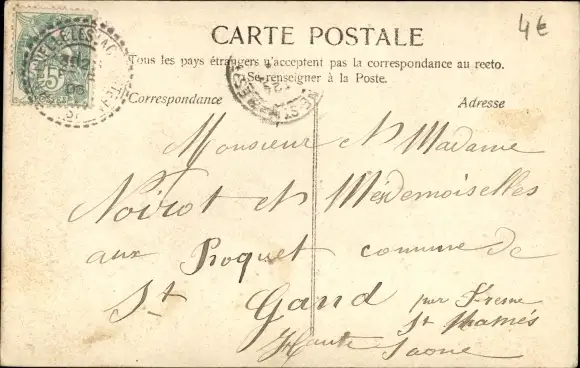 4€
CARTE POSTALE
Tous les pays étrangers n'acceptent pas la correspondance au recto.
Se renseigner à la Poste.
Correspondance
Adresse
5
Monsieur et Madame
Noirot et Mesdemoiselles
aux Proquet commune de
St Gand par Fresne
St Mamès
Haute Saone